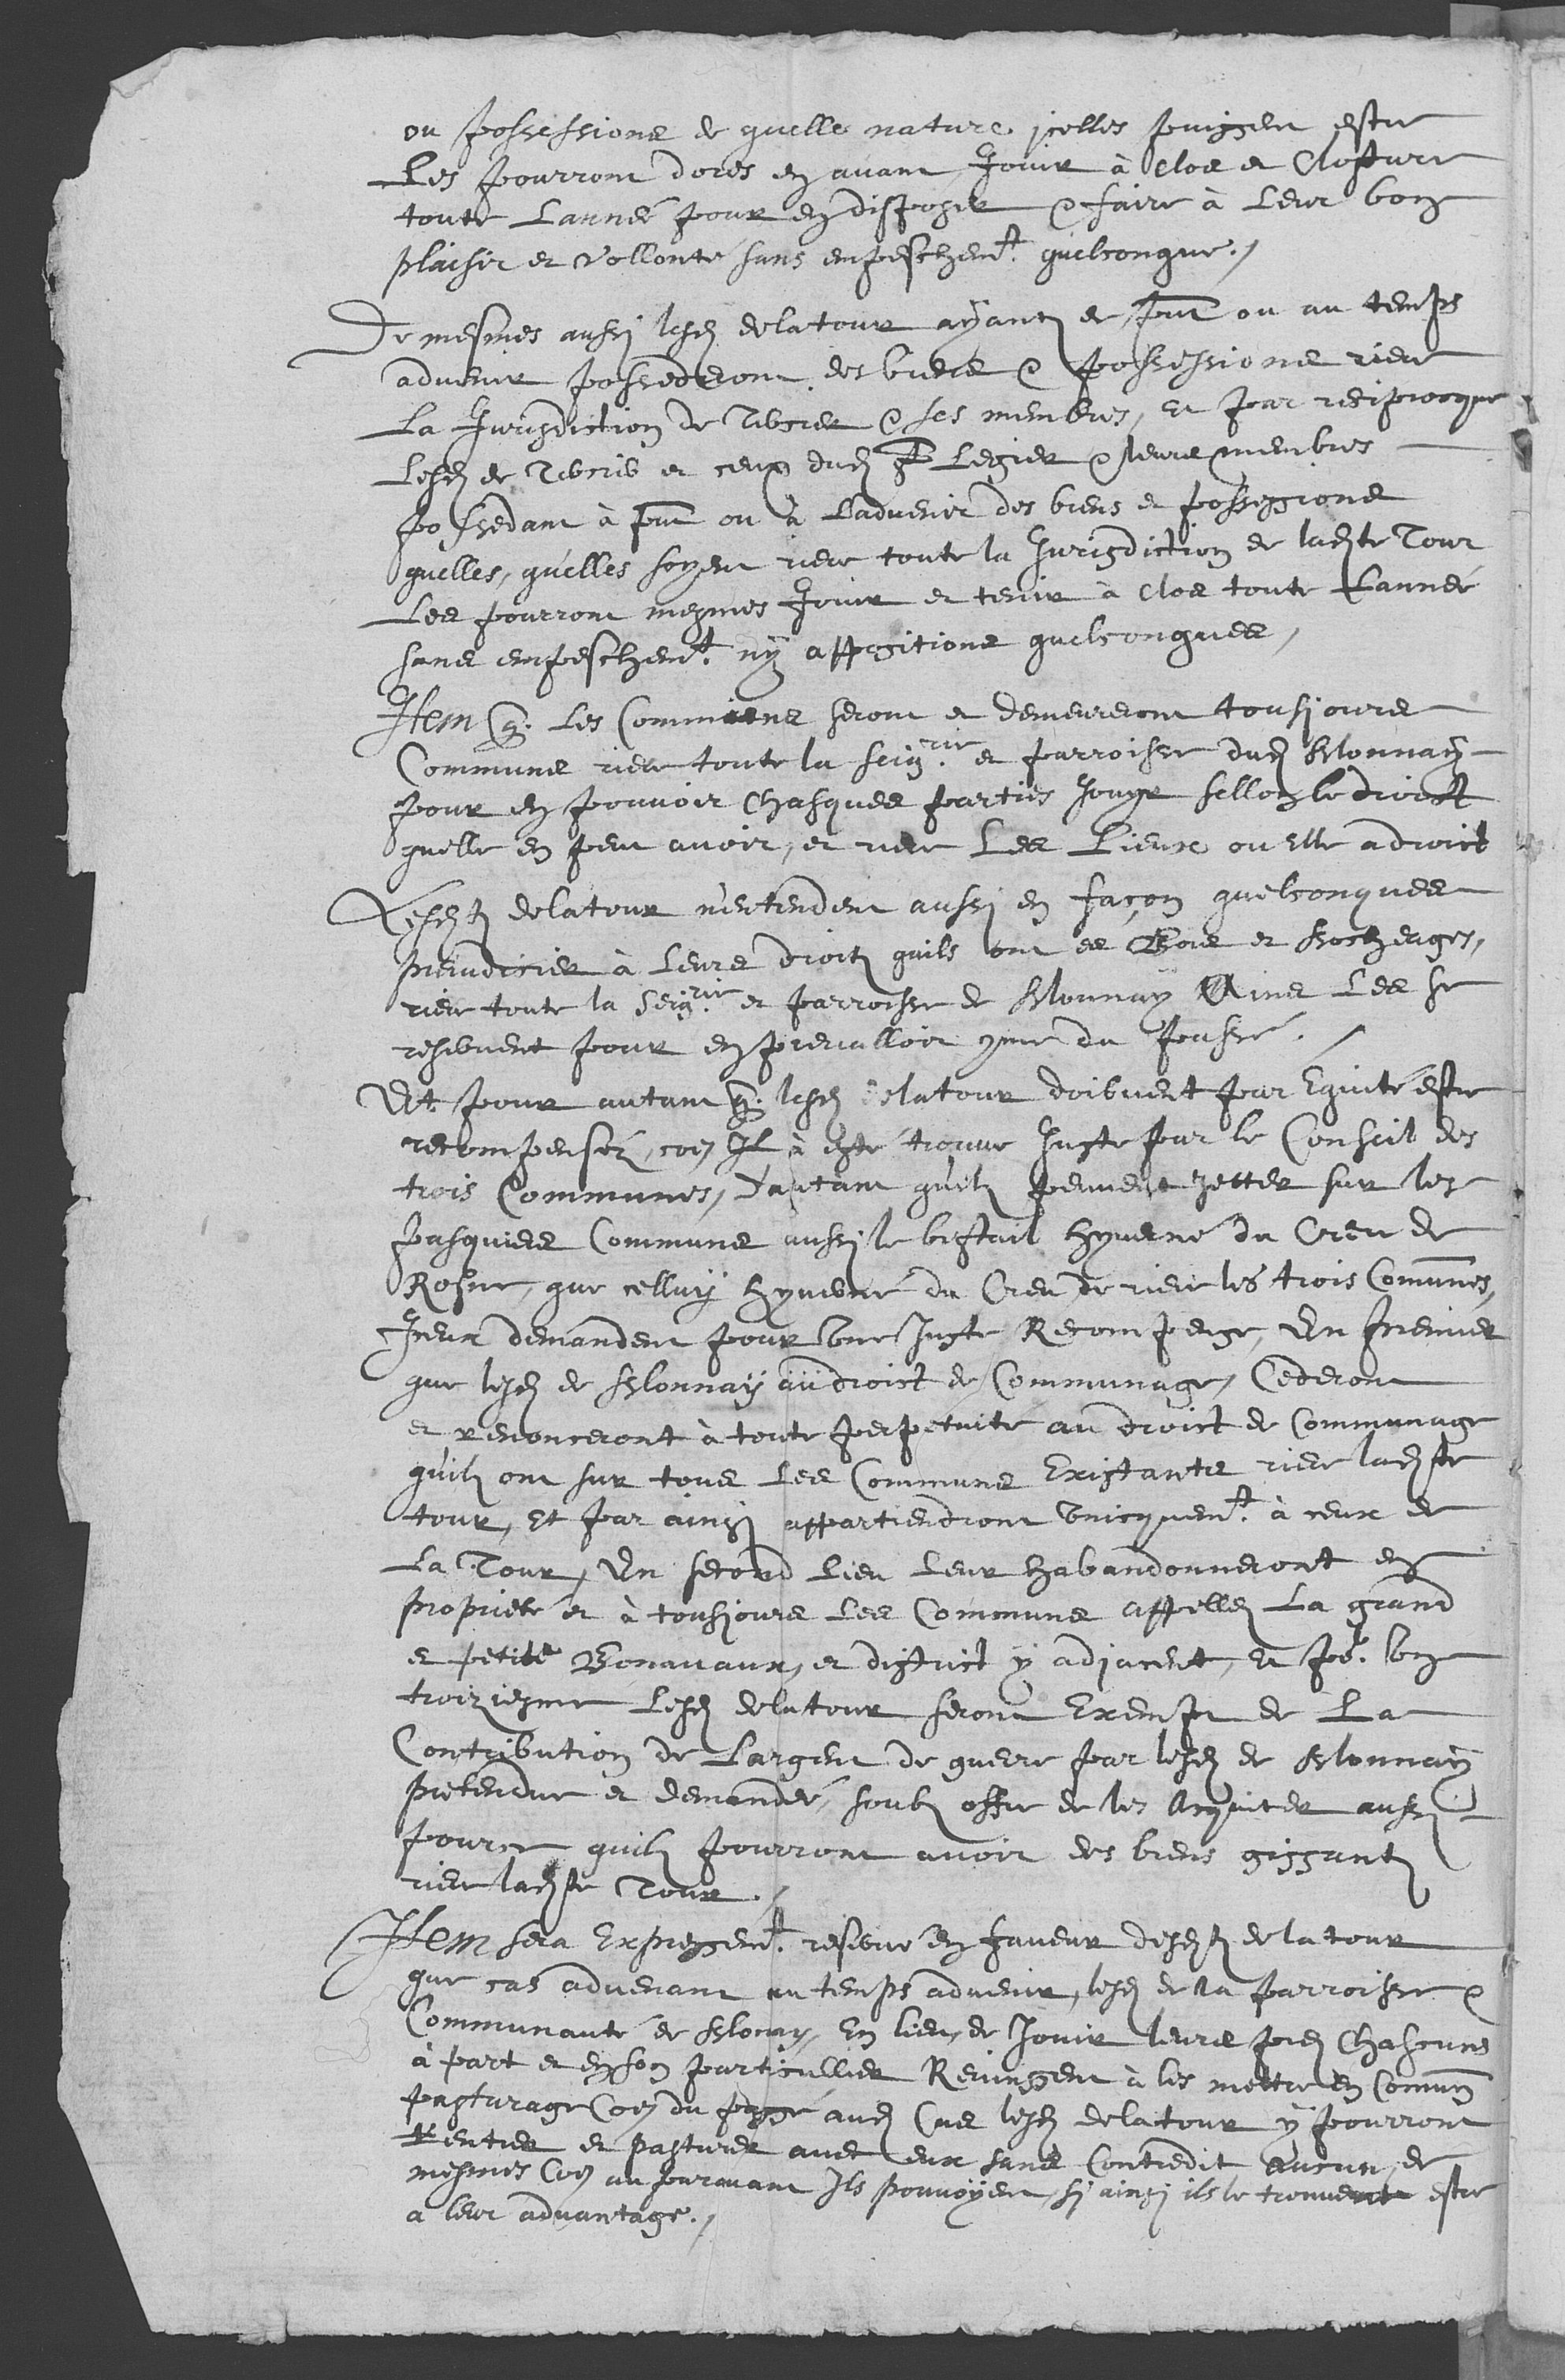 ou possessions de quelle nature jcelles puissent estre
Les pourront dores en avant Jouir à clos et closture
toute Lannée pour en disposer & faire à Leur bon
plaisir et vollonté sans empeschemt. quelconque./
De mesmes aussi lesd delatour ayants de pnt ou au temps
advenir possederont des biens & possessions riere
La Jurisdiction de & ses membres, et par reciprocque
lesd de et ceux dud St Legier & leurs membres
possedant à pnt ou à Ladvenir des biens et possessions
quelles, quelles soyent riere toute la Jurisdiction de ladite Tour
Les pourront mesmes Jouir et tenir à clos toute Lannée
sans empeschemt. ny oppositions quelconques,
Item q. les Communs seront et demeureront tousjours
Communs riere toute la seig.rie et parroisse dud Blonnay
pour en pouvoir chasques parties Jouyr sellon le droict
quelle en peut avoir, et riere Les Lieux ou elle a droict
Lesdts delatour n'entendent aussi en façon quelconques
prejudicier à Leurs droits quils ont es Bois et Rocheages,
riere toute la Seig.rie et parroisse de Blonnay Ains Les se
reservent pour en prevalloir cme du passé. /
Et pour autant q. lesd delatour doibvent par Equité estre
recompenséz, coe Il à esté trouvé Juste par le Conseil des
trois Communes, d'autant quils peuvent jetter sur les
pasquiers Communs aussi le bestail hyverné du Creu de
Rosne, que celluy hyverné du Creu de riere les trois Comunes,
Iceux demandent pour Une Juste Recompense, En premier
que lesd de Blonnay au droict de Communage, Cederont
et renonceront à toute perpetuité au droict de Communage
quils ont sur tous Les Communs Existants riere ladite
tour, Et par ainsi appartiendront Unicquemt. à ceux de
La Tour, En second Lieu Leur habandonneront en
proprieté et à tousjours Les Communs appellez La grand
et petite Bonavaux, et district y adjacent, Et pr. Un
troiziesme Lesd delatour seront Exempt de La
Contribution de Largent de guerre par lesd de Blonnay
pretendue et demandé, soubs offre de les acquiter aussi
pource quils pourront avoir des biens gissants
riere ladite Tour./
Item sera Expressemt. reservé en faveur desdts delatour
que cas advenant au temps advenir, lesd de la parroisse &
Communauté de Blonay, En lieu, de Jouir leurs pred Chascuns
à part et en son particullier Revinssent à les mettre en Comun
pasturage Coe du passé aud Cas lesd delatour y pourront
Rentrer et pasturer avec eux sans Contredit Aucun, de
mesmes Coe au paravant Ils pouvoyent, si ainsi ils le trouvent estre
a leur advantage./